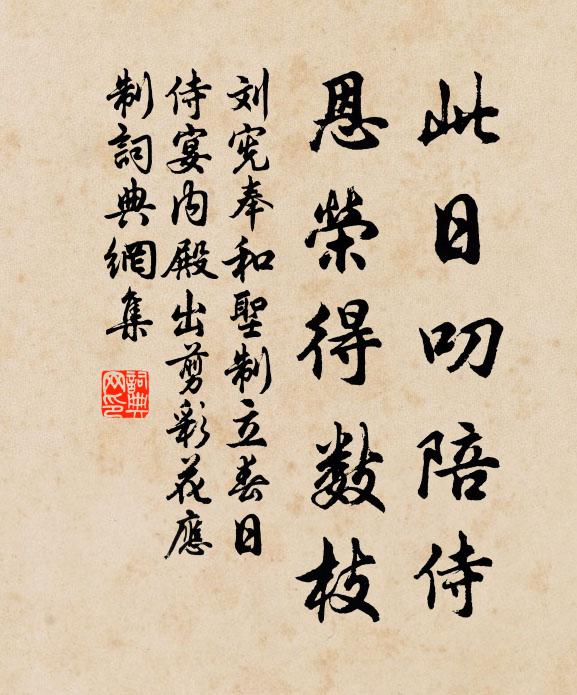 此日叨陪侍
恩榮得数枝
刘宪奉和聖制立春日
侍宴内殿出剪彩花應
制詞典網集
詞典
网印